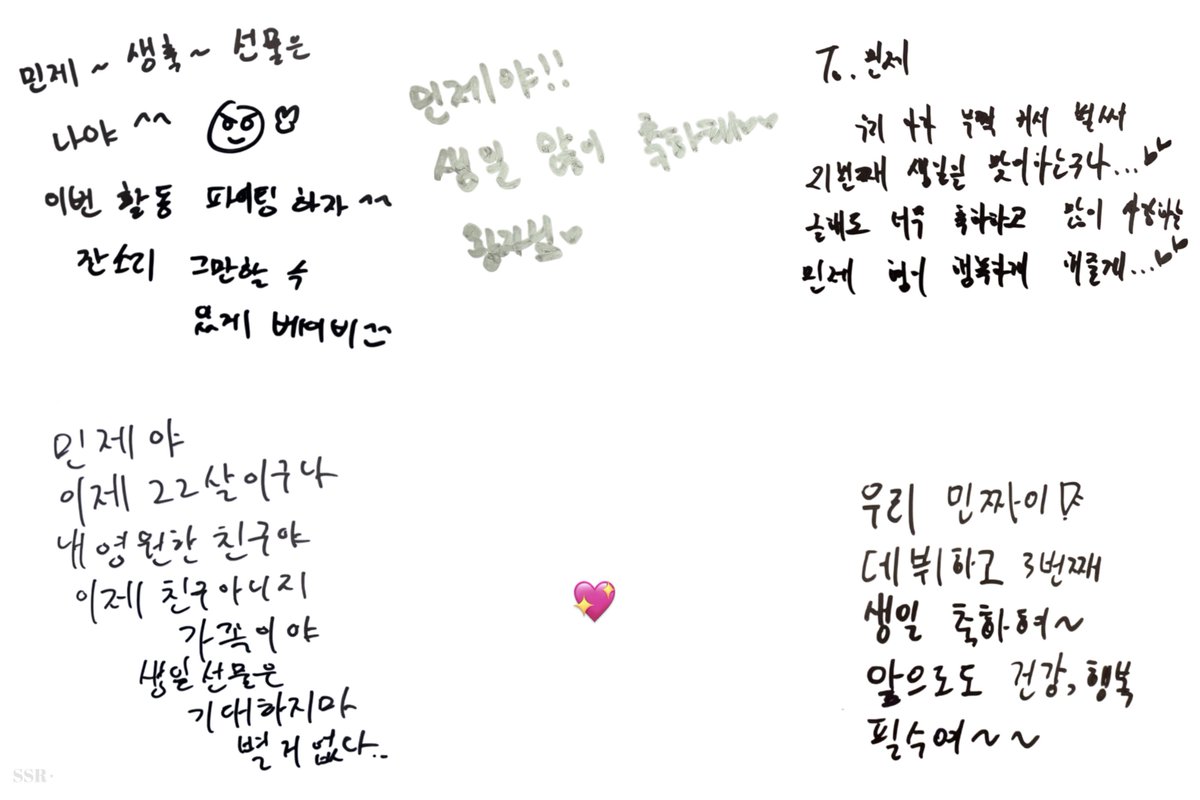 민제 ~ 생축 ~ 선물은
나야 ^^
이번 활동 파이팅 하자 ^^
잔소리 그만할 수
있게 베이비^^
민제야!!
생일 많이 축하해 ♡♡
왕자님♡
To. 민제
우리 쑥쑥 커서 벌써
21번째 생일을 맞이하는구나...
올해도 너무 축하하고 많이 사랑하는
민제 형이 행복하게 해줄게...
민제야
이제 22살이구나
내 영원한 친구야
이제 친구아니지
가족이야
생일선물은
기대하지마
별 거 없다..
우리 민짜이!
데뷔하고 3번째
생일 축하혀~
앞으로도 건강, 행복
필수여~~
SSR·